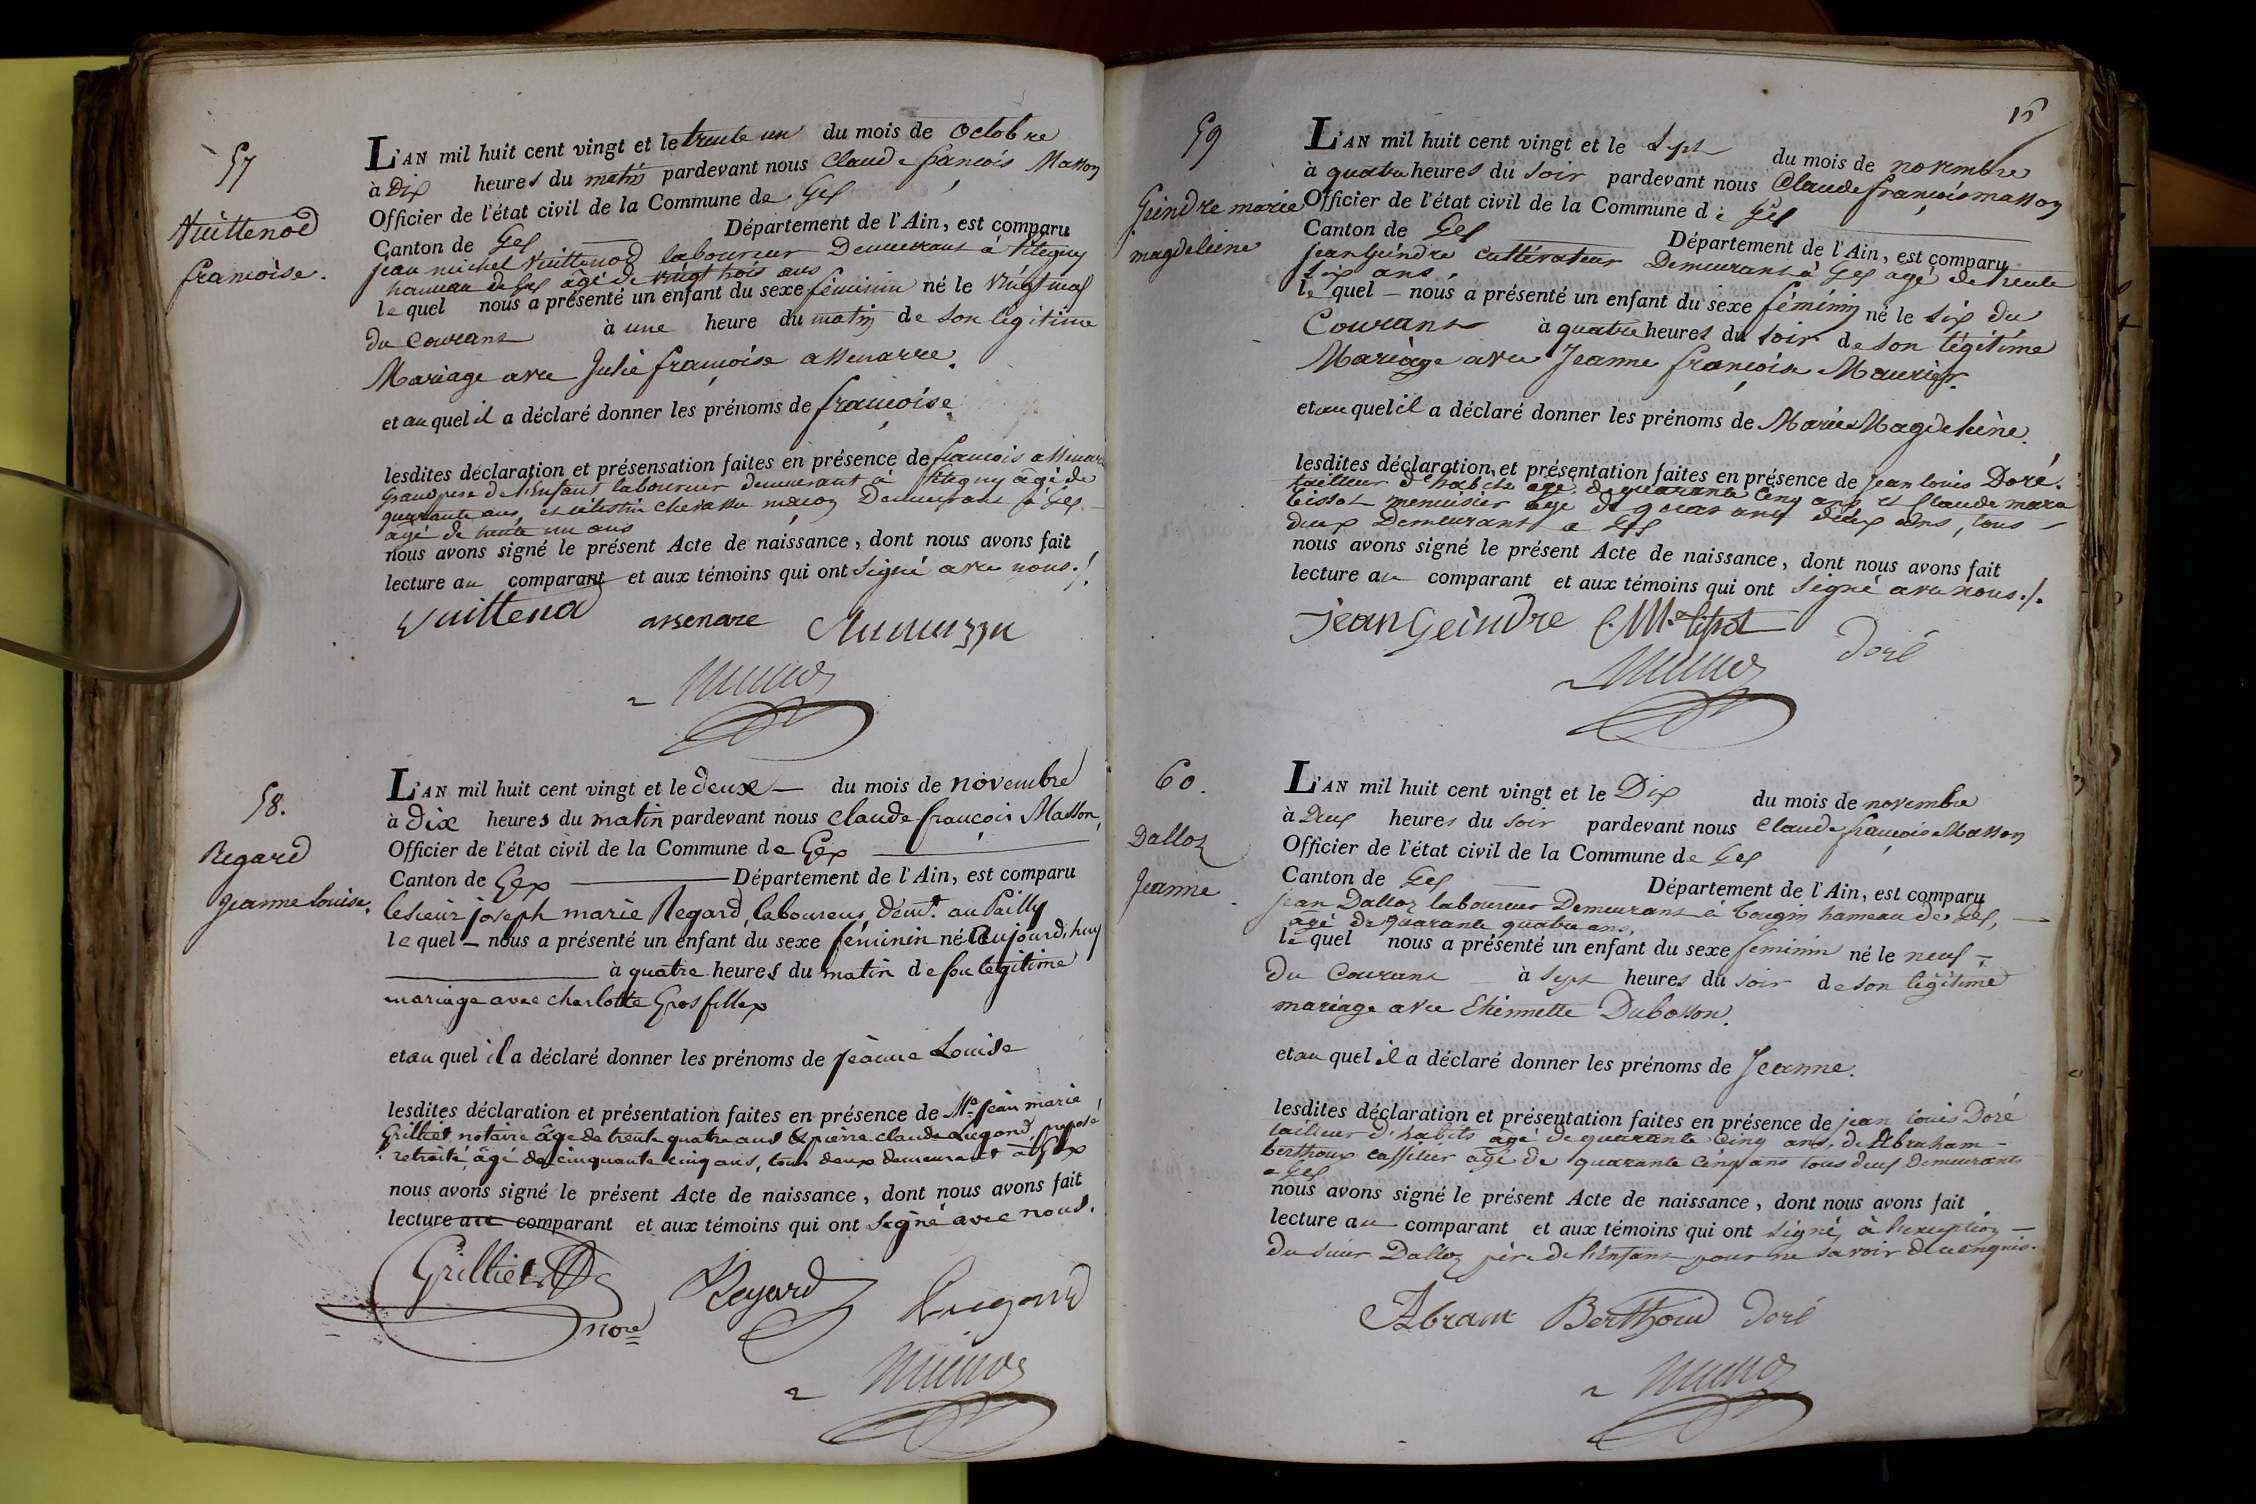 57
Vuittenod
françoise.
L'AN mil huit cent vingt et le trente un du mois de octobre
à Dix heures du matin pardevant nous Claude françois Masson
Officier de l'état civil de la Commune de Gex
Canton de Gex Département de l'Ain, est comparu
jean michel Vuittenod laboureur Demeurant à
hameau de Gex âgé de vingt trois ans
lequel nous a présenté un enfant du sexe féminin né le vingt neuf
du Courant à une heure du matin de son légitime
Mariage avec Julie françoise assenarre.
et au quel il a déclaré donner les prénoms de françoise.
lesdites déclaration et présensation faites en présence de françois assenare
Grand pere de l'Enfant laboureur demeurant à âgé de
quarante ans, et célestin maçon Demeurant à Gex
âgé de trente un ans
nous avons signé le présent Acte de naissance, dont nous avons fait
lecture au comparant et aux témoins qui ont Signé avec nous./.
Vuittenod assenare
58.
Regard
jeanne louise.
L'AN mil huit cent vingt et le deux du mois de novembre
à dix heures du matin pardevant nous claude françois Masson,
Officier de l'état civil de la Commune de Gex
Canton de Gex Département de l'Ain, est comparu
le sieur joseph marie Regard, laboureur, demt. au Pailly
lequel nous a présenté un enfant du sexe féminin né aujourd'huy
à quatre heures du matin de son légitime
mariage avec charlotte Grosfillex
et au quel il a déclaré donner les prénoms de jeanne Louise
lesdites déclaration et présentation faites en présence de Me. jean marie
Grilliet, notaire âgé de trente quatre ans & pierre claude Lugand, preposé
retraité, âgé de cinquante cinq ans, tous deux demeurant à Gex
nous avons signé le présent Acte de naissance, dont nous avons fait
lecture au comparant et aux témoins qui ont signé avec nous.
Grilliet Regard Lugand
nore
15
59
Geindre marie
magdeleine
L'AN mil huit cent vingt et le Sept du mois de novembre
à quatre heures du Soir pardevant nous Claude françois masson
Officier de l'état civil de la Commune de Gex
Canton de Gex Département de l'Ain, est comparu
jean Geindre cultivateur Demeurant à Gex agé de trente
six ans,
lequel nous a présenté un enfant du sexe féminin né le six du
Courant à quatre heures du soir de son légitime
Mariage avec Jeanne françoise Maurier.
et au quel il a déclaré donner les prénoms de Marie Magdeleine.
lesdites déclaration et présentation faites en présence de jean louis Doré.
tailleur d'habits agé de quarante Cinq ans et Claude marie
tissot menuisier âgé de quarante deux ans, tous
deux Demeurant a Gex
nous avons signé le présent Acte de naissance, dont nous avons fait
lecture au comparant et aux témoins qui ont signé avec nous./.
jean Geindre C. M. tissot doré
60.
Dalloz
Jeanne.
L'AN mil huit cent vingt et le Dix du mois de novembre
à Deux heures du soir pardevant nous Claude françois Masson
Officier de l'état civil de la Commune de Gex
Canton de Gex Département de l'Ain, est comparu
jean Dalloz laboureur Demeurant à tougin hameau de Gex,
âgé de quarante quatre ans,
lequel nous a présenté un enfant du sexe feminin né le neuf
du Courant à sept heures du soir de son légitime
mariage avec Etiennette Dubosson.
et au quel il a déclaré donner les prénoms de Jeanne.
lesdites déclaration et présentation faites en présence de jean louis Doré
tailleur d'habits âgé de quarante Cinq ans, de Abraham
berthoux agé de quarante Cinq ans tous deux Demeurants
a Gex
nous avons signé le présent Acte de naissance, dont nous avons fait
lecture au comparant et aux témoins qui ont signé, à l'exception
du sieur Dalloz père de l'Enfant pour ne savoir de ce enquis.
Abram Berthoud doré